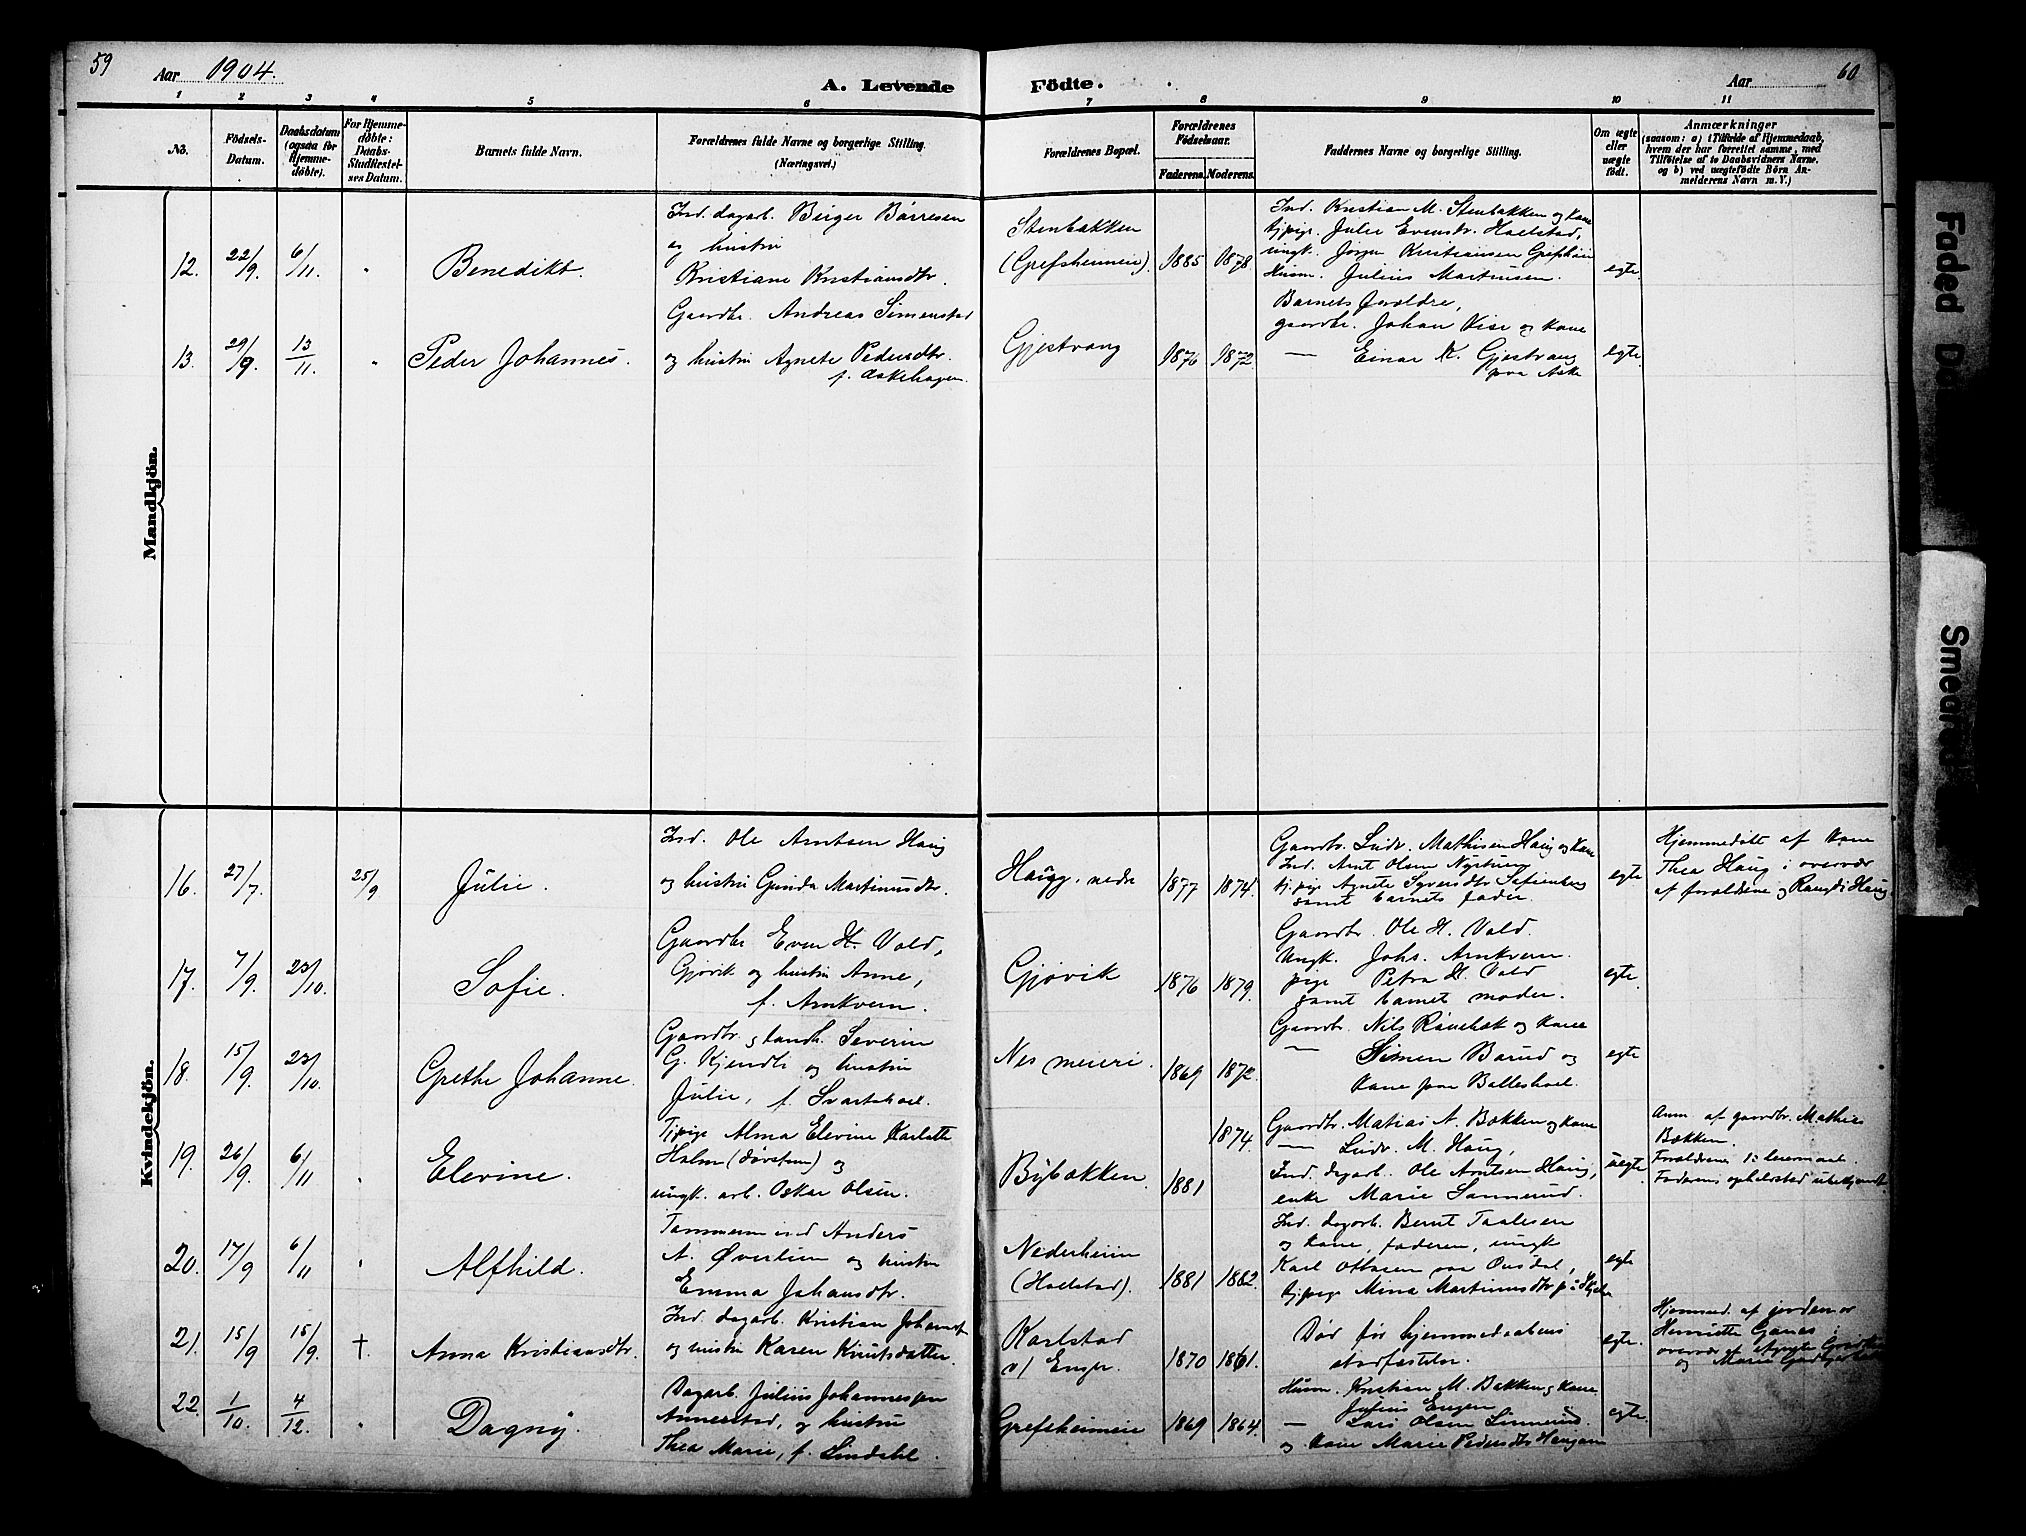 59
Aar 1904.
A. Levende
Födte.
Aar
60
1 2 3 4 5 6 7 8 9 10 11
No.
Födsels-
Datum.
Daabsdatum
(ogsaa for
Hjemme-
döbte).
For Hjemme-
döbte:
Daabs-
Stadfæstel-
ses Datum.
Barnets fulde Navn.
Forældrenes fulde Navne og borgerlige Stilling.
(Næringsvei.)
Forældrenes Bopæl.
Forældrenes
Födselsaar.
Faderens. Moderens.
Faddernes Navne og borgerlige Stilling.
Om ægte
eller
uægte
født.
Anmærkninger
(saasom: a) i Tilfælde af Hjemmedaab,
hvem der har forrettet samme, med
Tilföielse af to Daabsvidners Navne.
og b) ved uægtefödte Börn An-
melderens Navn m. V.)
Mandkjön.
12. 22/9. 6/11. " Benedikt.
Ind. dagarb. Birger Børresen
og hustru
Kristiane Kristiansdtr.
Stenbakken
(Grefsheimeie).
1885 1878
Ind. Kristian M. Stenbakken og kone
tjpige. Julie Evensdr. Hoelstad,
ungk. Jörgen Kristiansen Grefsheim
Husm. Julius Martinsen.
egte.
13. 29/9. 13/11. " Peder Johannes.
Gaardbr. Andreas Simenstad
og hustru Agnete Pedersdtr.
f. Askehagen.
Gjestvang
1876 1872
Barnets forældre,
gaardbr. Johan Vise og kone
— Einar K. Gjestvang
paa Aske
egte.
Kvindekjön.
16. 27/7. 25/9. Julie.
Ind. Ole Arntsen Haug
og hustru Gunda Martinusdtr.
Haug, nedre
1877 1874.
Gaardbr. Ludv. Mathisen Haug og kone
Ind. Arnt Olsen Nystuen
tj.pige Agnete Syversdtr.
samt barnets fader.
egte
Hjemmedøbt af kone
Thea Haug i overvær
af forældrene og Haug.
17. 7/9. 23/10. Sofie.
Gaardbr Even H. Vold,
Gjøvik og hustru Anne,
f. Arnkvern.
Gjøvik
1876 1879.
Gaardbr. Ole H. Vold.
Ungk. Johs. Arnkvern.
pige Petra H. Vold
samt barnet moder.
egte.
18. 15/9. 23/10. Grethe Johanne.
Gaardbr. og landh. Severin
G. Kjendli og hustru
Julie, f. Svartshoel.
Nes meieri.
1869 1872.
Gaardbr. Nils Rønebæk og kone
— Simen Barud og
kone paa Balleshoel.
egte
19. 26/9. 6/11. " Elevine.
Tjpige Alma Elevine Karlotte
Holm (Dørstuen) og
ungk. arb. Oskar Olsen.
Bybakken.
1881 1874.
Gaardbr. Matias A. Bakken og kone
— Ludv. M. Haug,
Ind. dagarb. Ole Arntsen Haug,
enke Marie Sannerud.
uegte.
Anm. af gaardbr. Mathias
Bakken.
Forældrenes 1ste leiermaal.
Faderens opholdssted ubekjendt.
20. 17/9 6/11 " Alfhild.
Tømmerm. ind Anders
A. Øverlien og hustru
Emma Johansdtr.
Nederheim
(Hoelstad).
1881 1882.
Ind. dagarb. Bernt Taalesen
og kone, faderen, ungk
Karl Ottosen
tj.pige Mina Martinusdtr
egte
21. 15/9 15/9. †. Anna Kristiansdtr.
Ind. dagarb. Kristian Johansen
og hustru Karen Knutsdatter.
Karlstad
v/ Enger.
1870 1861.
Død før hjemmedaabens
stadfæstelse.
egte.
Hjemmed. af jordmor
Henriette Ganes i
overvær af
og Marie
22. 1/10. 4/12. " Dagny.
Dagarb. Julius Johannessen
Annerstad, og hustru
Thea Marie, f. Lindahl.
Grefsheimeie
1869 1864.
Husm. Kristian M. Bakken og kone
Julius Engen
— Lars Olsen Linnerud.
og kone Marie Pedersdtr Haugen
egte.
Faded
Smeared